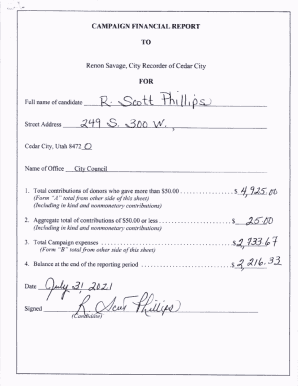 CAMPAIGN FINANCIAL REPORT
TO
Renon Savage, City Recorder of Cedar City
FOR
Full name of candidate R. Scott Phillips
Street Address 249 S. 300 W.,
Cedar City, Utah 8472 0
Name of Office City Council
1. Total contributions of donors who gave more than $50.00 $ 4,925.00
(Form "A" total from other side of this sheet)
(Including in kind and nonmonetary contributions)
2. Aggregate total of contributions of $50.00 or less $ 25.00
(Including in kind and nonmonetary contributions)
3. Total Campaign expenses $ 2,733.67
(Form "B" total from other side of this sheet)
4. Balance at the end of the reporting period $ 2,216.33
Date July 31, 2021
Signed R. Scott Phillips
(Candidate)